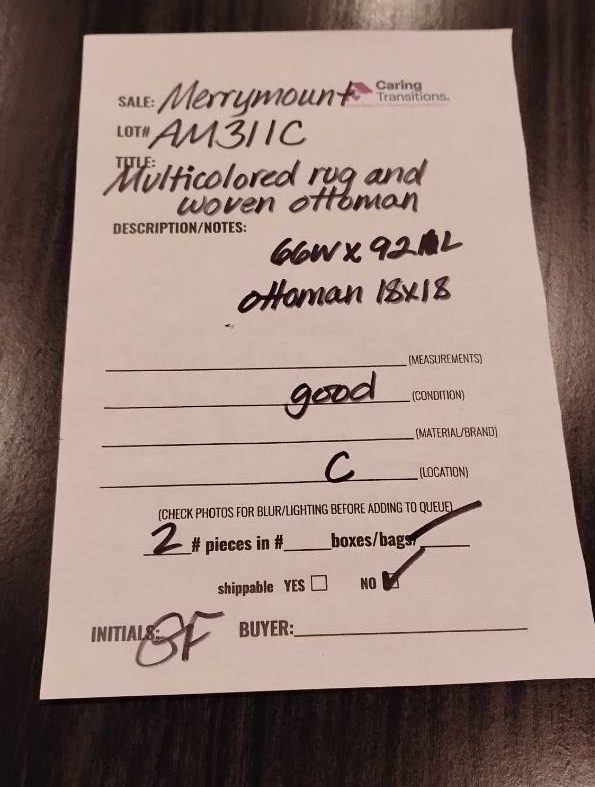 SALE: Merrymount Caring Transitions.
LOT# AM311C
TITLE: Multicolored rug and
woven ottoman
DESCRIPTION/NOTES:
66W x 92 L
ottoman 18x18
(MEASUREMENTS)
good (CONDITION)
(MATERIAL/BRAND)
C (LOCATION)
(CHECK PHOTOS FOR BLUR/LIGHTING BEFORE ADDING TO QUEUE)
2 # pieces in #____ boxes/bags
shippable YES ☐ NO ☑
INITIALS: BUYER: